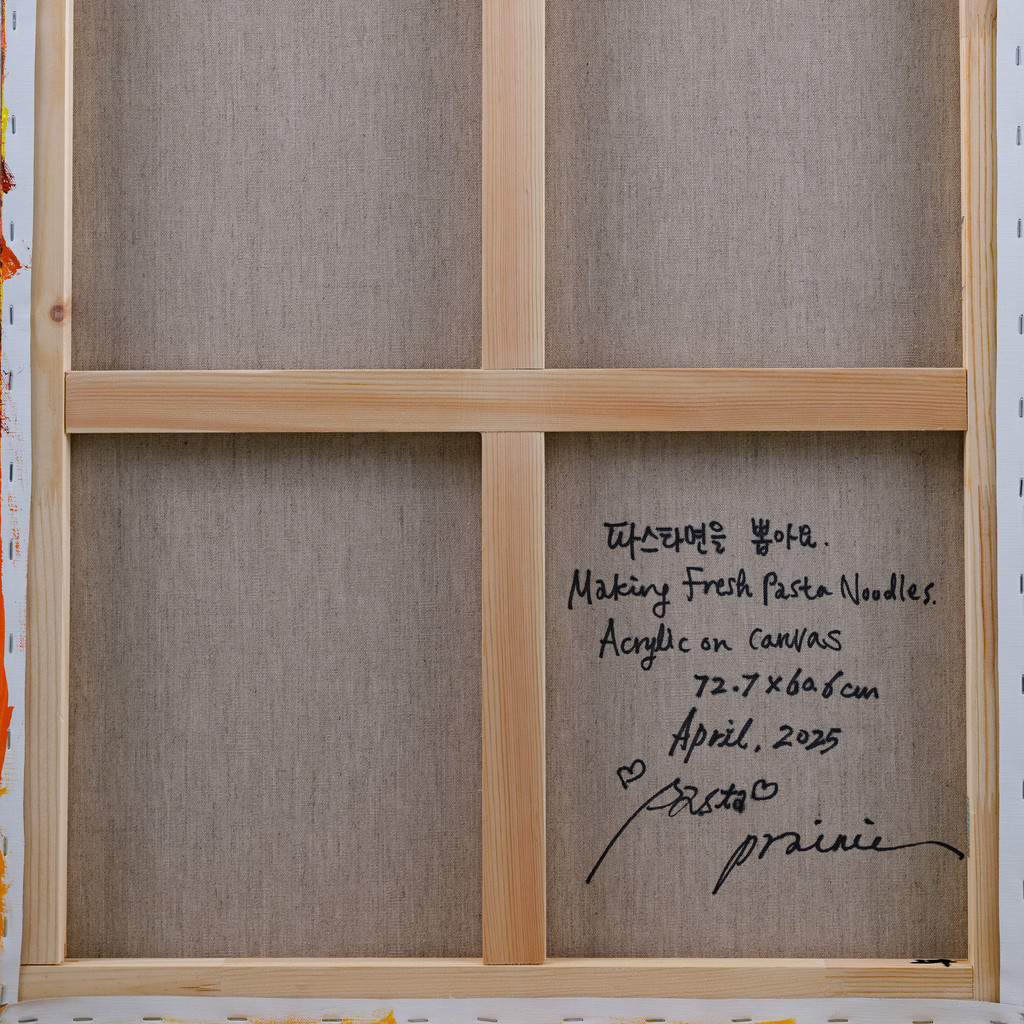 파스타면을 뽑아요.
Making Fresh Pasta Noodles.
Acrylic on canvas
72.7 x 60.6 cm
April, 2025
♡ pasta ♡
prairie